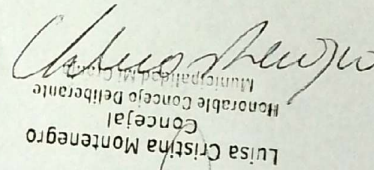 Luisa Cristina Montenegro
Concejal
Honorable Concejo Deliberante
Municipalidad Mi